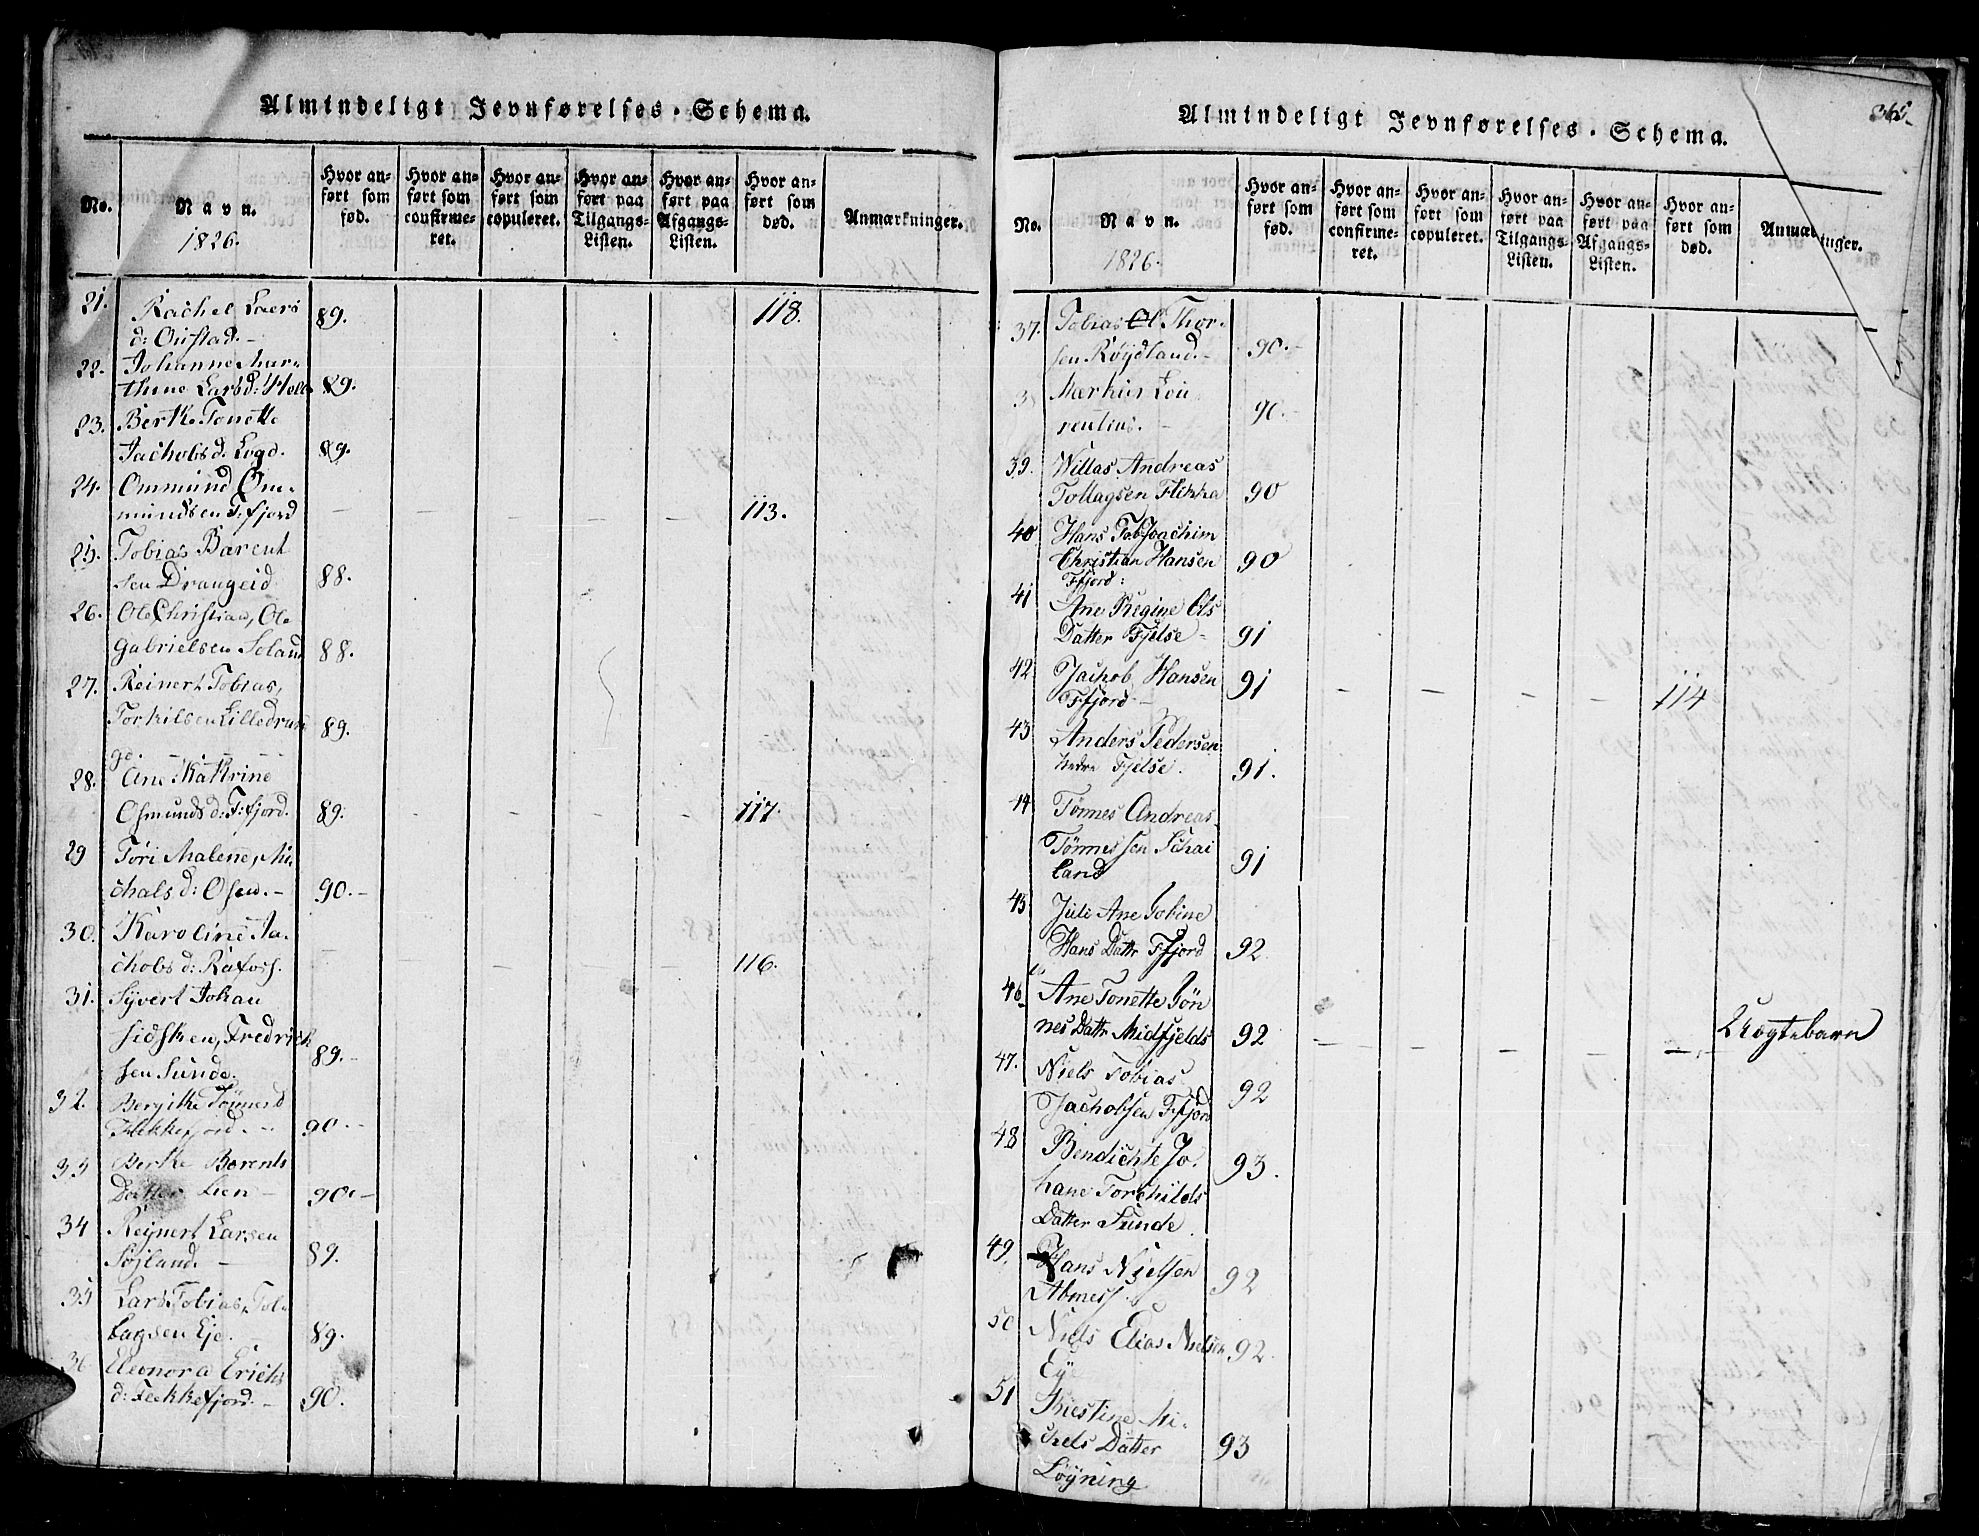 Almindeligt Jevnførelses-Schema.
No.
Navn.
1826.
Hvor an-
ført som
fød.
Hvor an-
ført som
confirme-
ret.
Hvor an-
ført som
copuleret.
Hvor an-
ført paa
Tilgangs-
Listen.
Hvor an-
ført paa
Afgangs-
Listen.
Hvor an-
ført som
død.
Anmærkninger.
21. Rachel Laers 89. 118.
d:
22. Johanne Mar-
thine Larsd: 89.
23. Berthe Tonette
Jachobsd. Logd. 89.
24. Ommund Om-
mundsen F:fjord 113.
25. Tobias Barent
sen Drangeid 88.
26. Ole Christian, Ole
Gabrielsen Seland 88.
27. Reinert Tobias,
Torkilsen Lilledran 89.
ge.
28. Ane Katrine
Osmunds d: F:fjord. 89. 117.
29 Tori Malene, Mi
chals d: Osen. 90.
30. Karoline Ja-
chobs d: Rafoss. 116.
31. Syvert Johan
Fredrich
sen Sunde. 89.
32. Bergithe Tønnes d
Flekkefjord. 90
33 Berthe Berents
Datter Lien 90.
34 Reynert Larsen
Søjland. 89.
35 Lars Tobias, Tol-
lagsen Eje. 89.
36 Eleonora Erichs
d: Flekkefjord. 90.
Almindeligt Jevnførelses-Schema.
No.
Navn.
1826.
Hvor an-
ført som
fød.
Hvor an-
ført som
confirme-
ret.
Hvor an-
ført som
copuleret.
Hvor an-
ført paa
Tilgangs-
Listen.
Hvor an-
ført paa
Afgangs-
Listen.
Hvor an-
ført som
død.
37. Tobias Ol Thor-
sen Røydland. 90.
Markus Lou
rentius. 90.
39. Willas Andreas
Tollagsen Flikka 90
40 Hans Tob Joachim
Christian Hansen 90
Ffjord:
41 Ane Regine Ols
Datter Fjelse 91
42 Jachob Hansen 91 114
Ffjord
43 Anders Pedersen
Fjelse. 91.
44 Tønnes Andreas
Tønnessen Schai 91
land
45 Juli Ane Tobine
Hans Dattr Ffjord 92
46 Ane Tonette Tøn
nes Dattr Midfjelds 92 Uægtebarn
47. Niels Tobias
Jachobsen Ffjord 92
48 Bendichte Jo-
hane Torchilds 93.
Datter Sunde.
49. Hans Nielsen
Abness 92
50 Niels Elias Nielsen 92.
Eye
51 Kiestine Mi-
chels Datter 93
Løyning